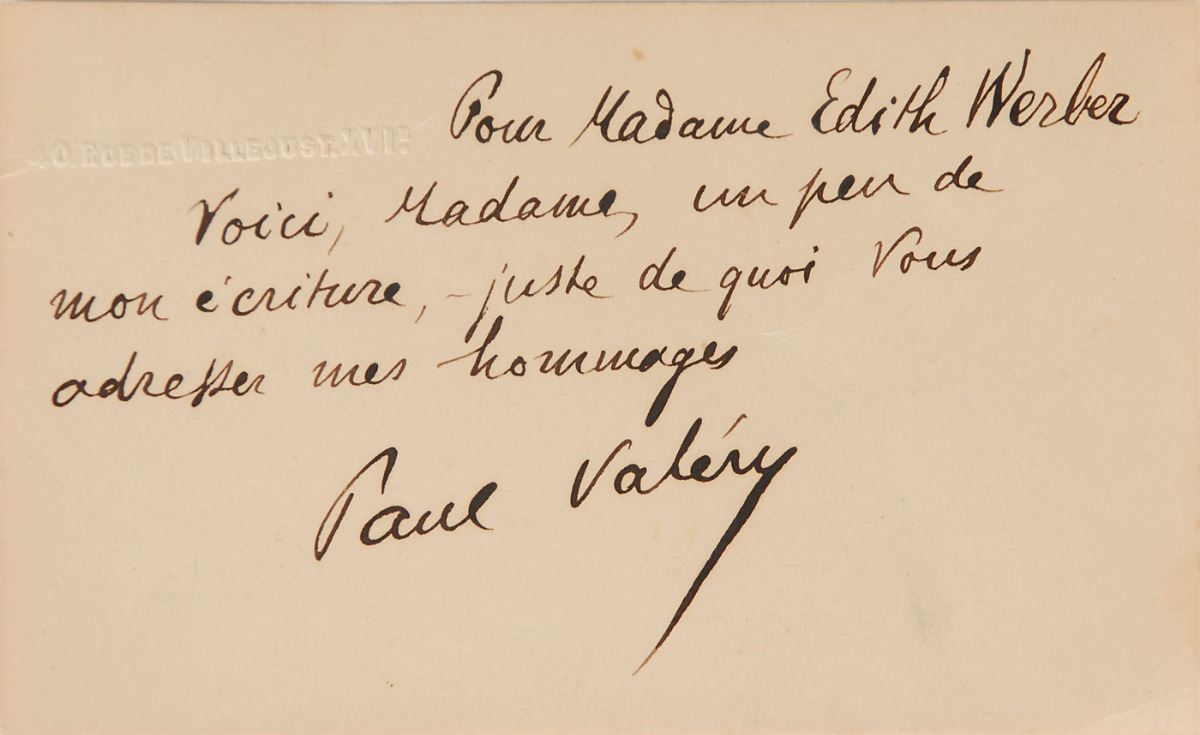 Pour Madame Edith Werber
40. RUE DE VILLEJUST. XVIE
Voici, Madame, un peu de
mon écriture, - juste de quoi Vous
adresser mes hommages
Paul Valéry